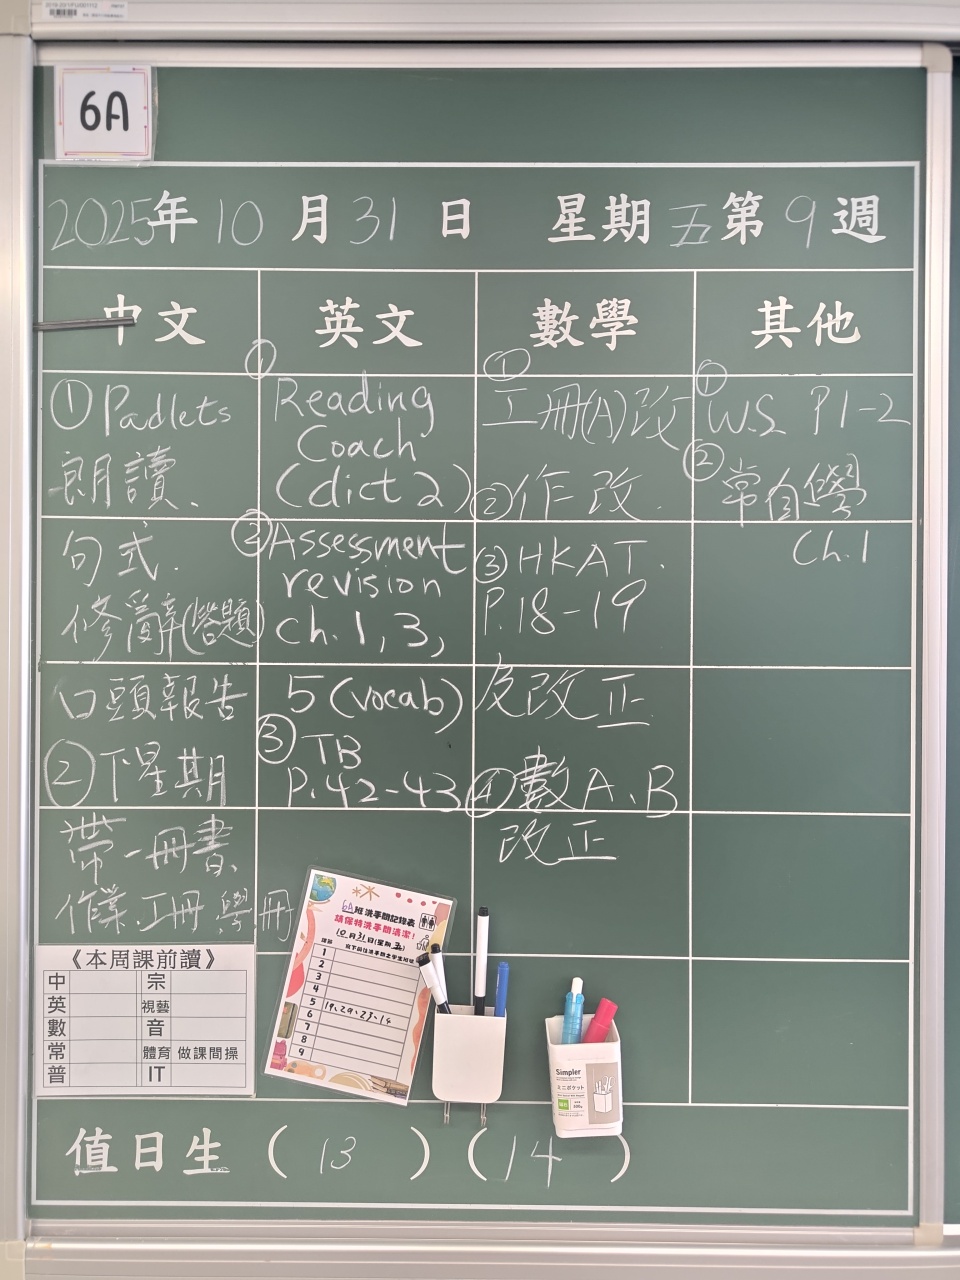 6A
2025年10月31日 星期五第9週
中文
① Padlets
朗讀、
句式.
修辭(答題)
口頭報告
② 下星期
帶一冊書、
作業、工冊、學冊
英文
① Reading
Coach
(dict 2)
② Assessment
revision
ch.1, 3,
5 (vocab)
③ TB
P.42-43
數學
①
工冊(A)改
② 作改.
③ HKAT.
P.18-19
及改正
④ 數A、B
改正
其他
① W.S. P1-2
② 常自學
Ch.1
《本周課前讀》
中 宗
英 視藝
數 音
常 體育 做課間操
普 IT
6A班洗手間記錄表
請保持洗手間清潔!
10月31日(星期五)
課節 底下前往洗手間之學生班號
1
2
3
4
5 19、29、23、14
6
7
8
9
Simpler
ミニポケット
值日生 (13) (14)